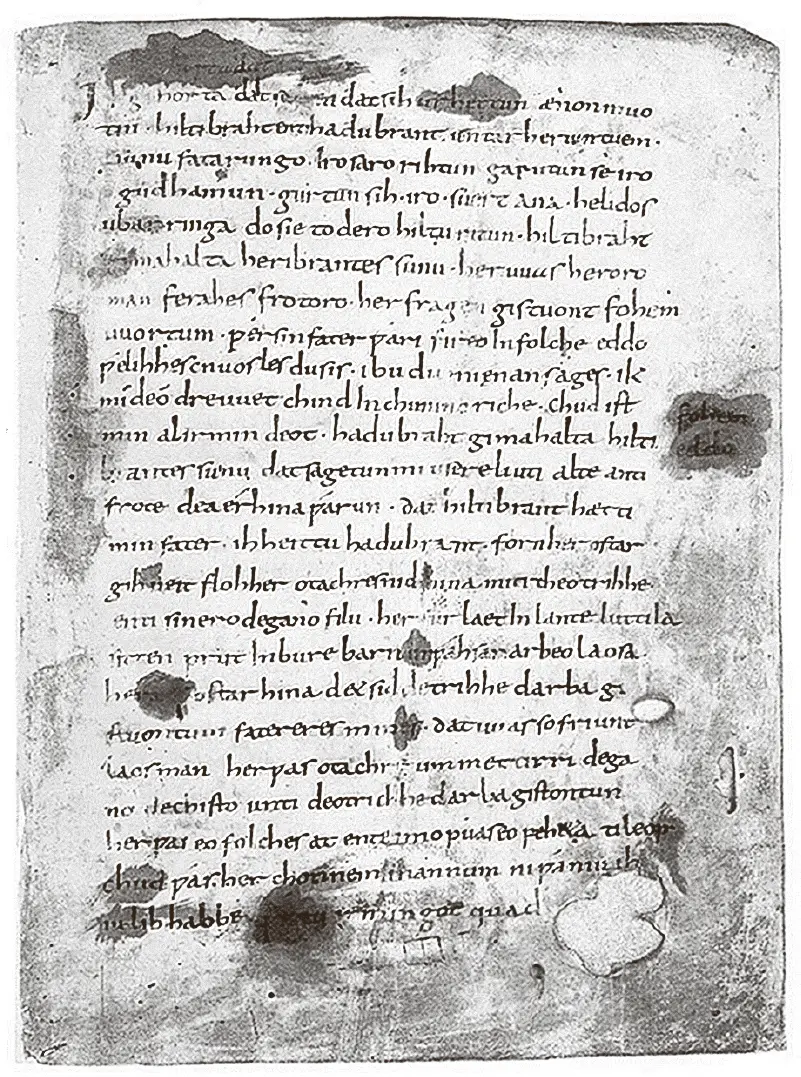 horta dat dat sih urhettun ænon muo
tin · hiltibraht enti hadubrant · untar heriun tuem ·
sunu fatarungo · iro saro rihtun garutun se iro
gudhamun · gurtun sih · iro · suert ana · helidos
ubar ringa do sie to dero hiltu ritun · hiltibraht
gimahalta heribrantes sunu · her uuas heroro
man ferahes frotoro · her fragen gistuont fohem
uuortum · ƿer sin fater ƿari fireo In folche eddo
ƿelihhes cnuosles du sis · ibu du mi enan sages · ik
mi deo dre uuet chind In chunincriche · chud ist
min al irmin deot · hadubraht gimahalta hilti
brantes sunu dat sagetun mi usere liuti alte anti
frote dea érhina ƿarun · dat hiltibrant hætti
min fater · ih heittu hadubrant · forn her ostar
gihueit floh her otachres nid hina miti theotrihhe
enti sinero degano filu · her fur laet In lante luttila
sitten prut In bure barn unƿahsan arbeo laosa
her ostar hina det sid detrihhe darba gi
stuontum fatereres mines · dat uuas so friunt
laos man her ƿas otachre ummet tirri dega
no dechisto unti deotrichhe darba gistontun
her ƿas eo folches at ente imo ƿuas eo peheta ti leop
chud ƿas her chonnem mannum ni ƿaniu ih
iu lib habbe irmingot quad
fohem
eddo